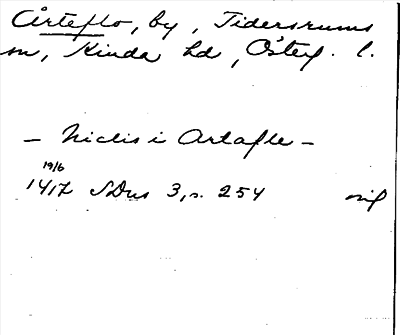 Årteflo, by, Tidersrums
sn, Kinda hd, Österg. l.
– Niclis i Artafle –
19/6
1417 SDns 3, s. 254 orig